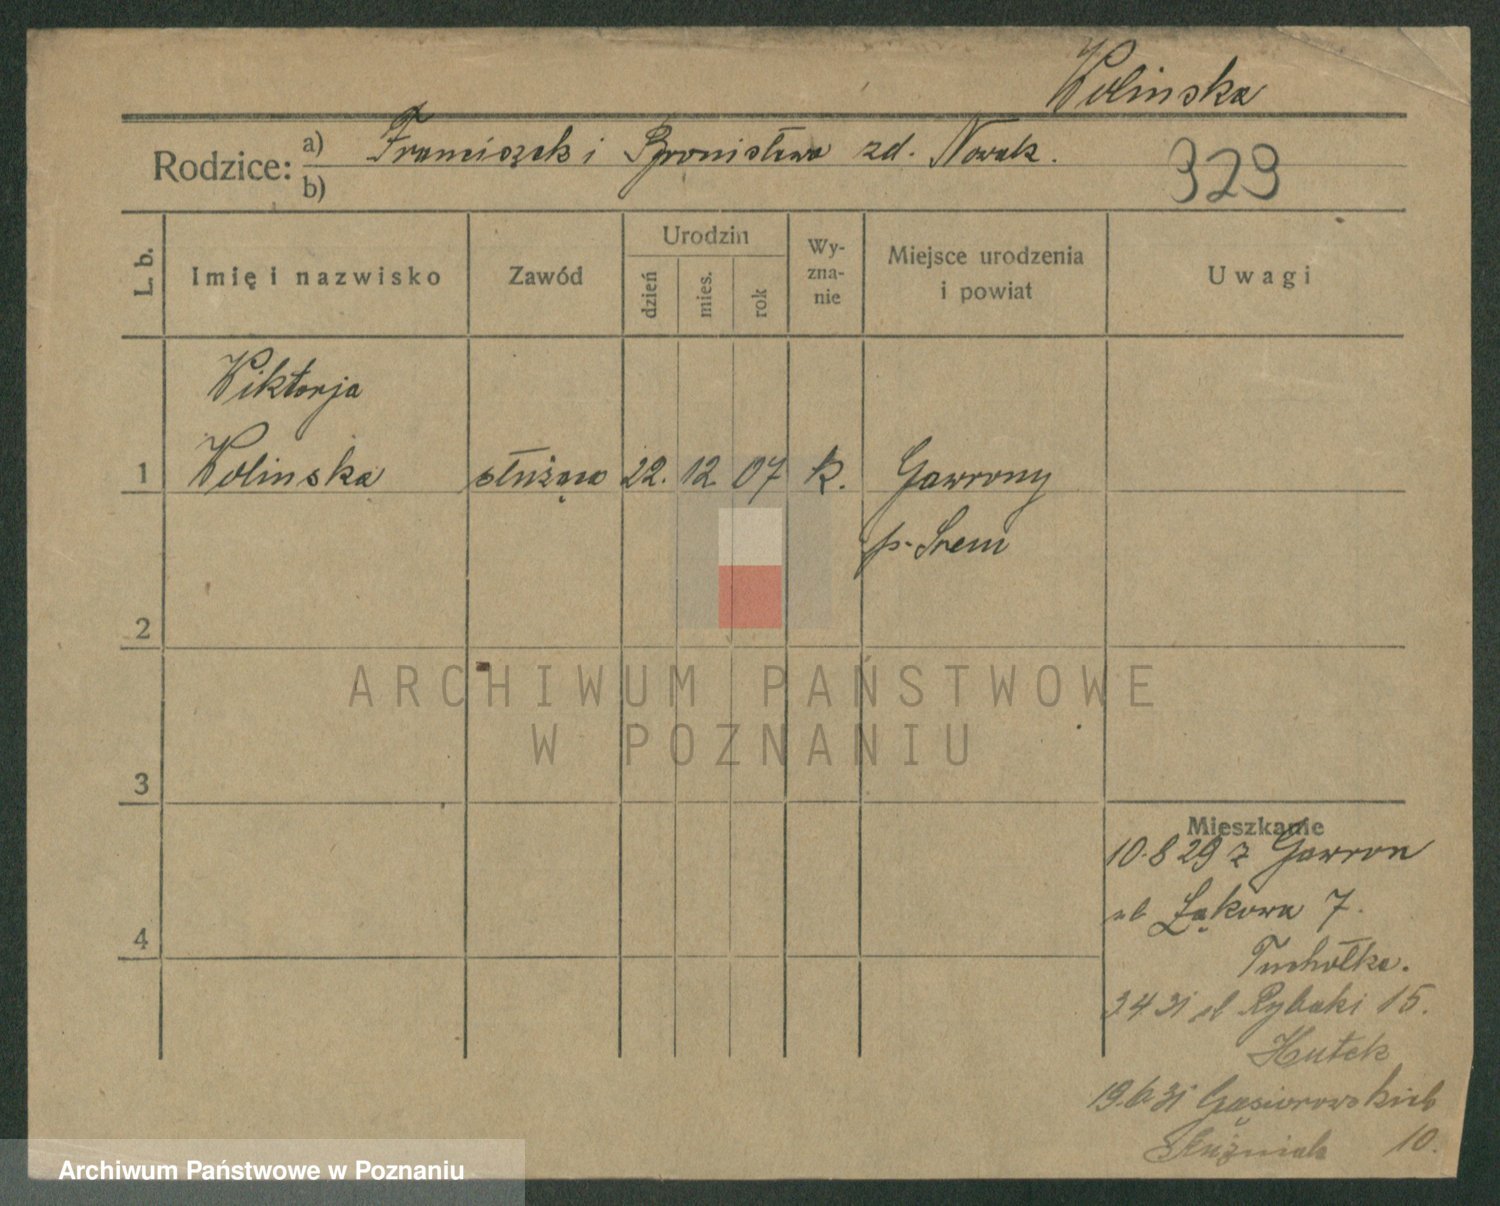 Wolinska
Rodzice: a) Franciszek i Bronisława zd. Nowak.
b)
929
L. b.
Imię i nazwisko
Zawód
Urodzin
dzień
mies.
rok
Wy-
zna-
nie
Miejsce urodzenia
i powiat
Uwagi
Wiktorja
1 Wolinska służąca 22. 12. 07 k. Gawrony
p. Śrem
2
3
4
Mieszkanie
10.8 29 z Gawron
ul Łąkowa 7.
Tuchółka.
2 4 31 ul Rybaki 15.
Hutek
19.6 31 Gąsiorowskich
10.
ARCHIWUM PAŃSTWOWE
W POZNANIU
Archiwum Państwowe w Poznaniu